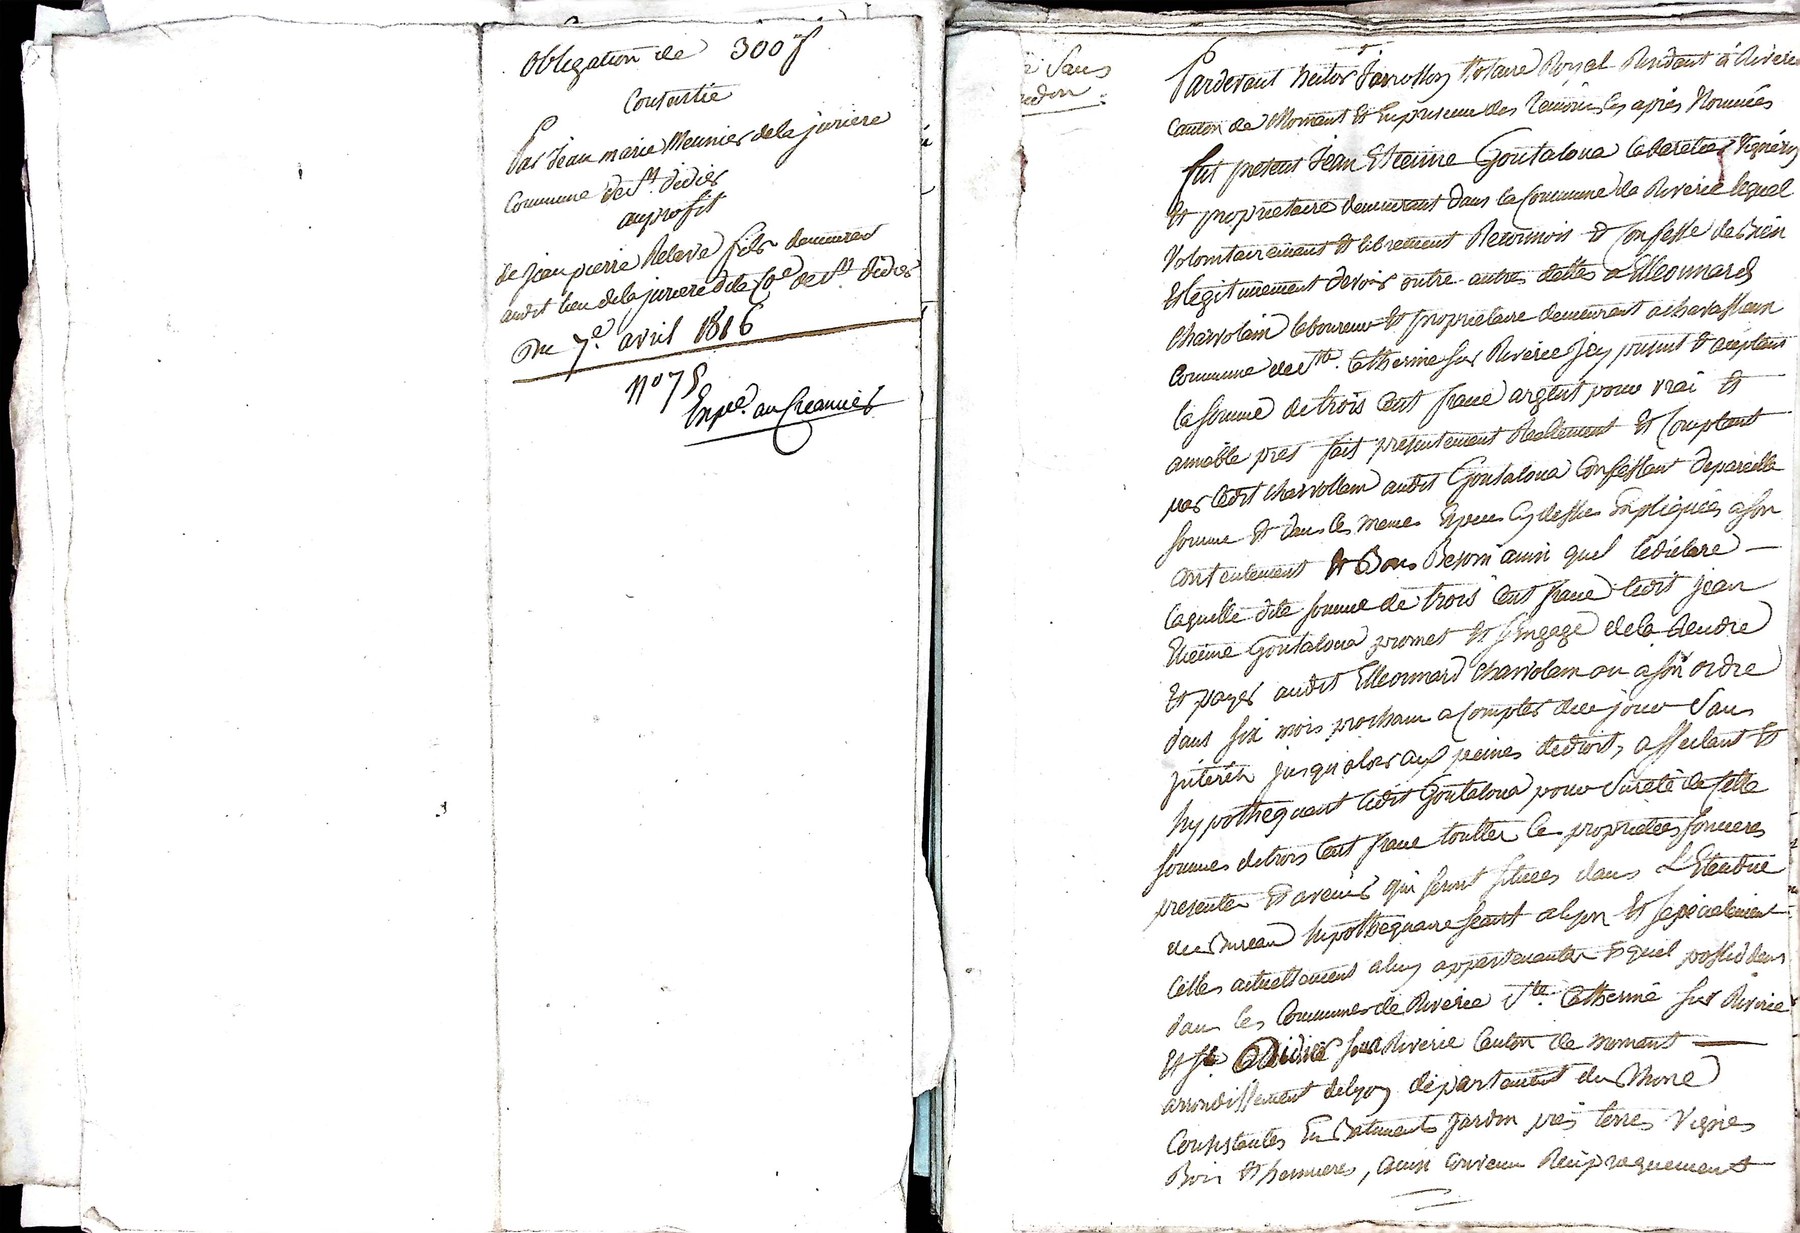 obligation de 300 f
Consentie
Par Jean marie Meunier de la juriere
Commune de St. didier
au profit
de Jean pierre Releve fils demeurant
audit lieu de la juriere dite Co.e de St. didier
Du 7.e avril 1816
N° 75
Exp.ée au Creancier
Sans
Pardevant hector Jarrosson Notaire Royal Residant à Riverie
Canton de Mornant Et En presence des Temoins cy après Nommés
fut present Jean Etienne Goutalova cabaretier vigneron
Et proprietaire demeurant dans la Commune de Riverie lequel
Volontairement Et librement Reconnois Et Confesse de bien
Et legitimement devoir outre autres dettes a Elleonnard
Charvolain laboureur Et proprietaire demeurant a
Commune de Ste. Catherine sur Riverie Icy present Et aceptant
la somme de trois Cent franc argent pour vrai Et
amiable pres fait presentement Reallement Et Comptant
par ledit Charvollain audit Goutalova Confessant depareille
somme Et dans les memes Especes Cy dessus Expliquées a son
Contentement Et Bon Besoin ainsi quel le déclare —
laquelle dite somme de trois Cent franc ledit Jean
Etienne Goutalova promet Et s'engage de la Rendre
Et payer audit Elleonnard Charvolain ou a son ordre
dans six mois prochain a Compter de ce jour Sans
jnterêts jusqu'alors aux peines de droit, affectant Et
hypothequant ledit Goutalova pour Sureté de sette
somme de trois Cent franc toutter les proprietées foncieres
presenter Et avenir qui seront situées dans L'Etendue
du Bureau hypothequaire séant a lyon Et specialement
Celles actuellement a luy appartenanter Et quel possede dans
dans les Communes de Riverie Ste. Catherine sur Riverie
Et St Didier sous Riverie Canton de mornant —
arrondissement de lyon departement du Rhone
Consistantes En Batiments Jardin prés terres Vignes
Bois Et hermieres, ainsi Convenu Reciproquement